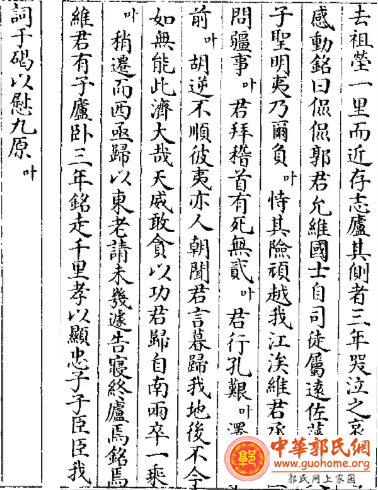 去祖塋一里而近存志廬其側者三年哭泣之哀
感動銘曰侃侃郭君允維國士自司徒屬遠佐藩
子聖明夷乃爾負叶 恃其險頑越我江涘維君丞
問疆事叶 君拜稽首有死無貳叶 君行孔艱叶
前叶 胡逆不順彼夷亦人朝聞君言暮歸我地後不令
如無能此濟大哉天威敢貪以功君歸自南兩卒一乘
叶 稍遷而西亟歸以東老請未幾遽告寢終廬焉銘焉
維君有子廬卧三年銘走千里孝以顯忠子子臣臣我
詞于碣以慰九原叶
中華郭氏網
www.guohome.org
郭氏网上家园